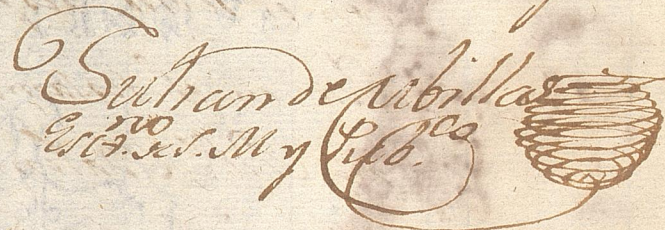 Julian de Ubillos
Esc.no de S. M. y Pub.co